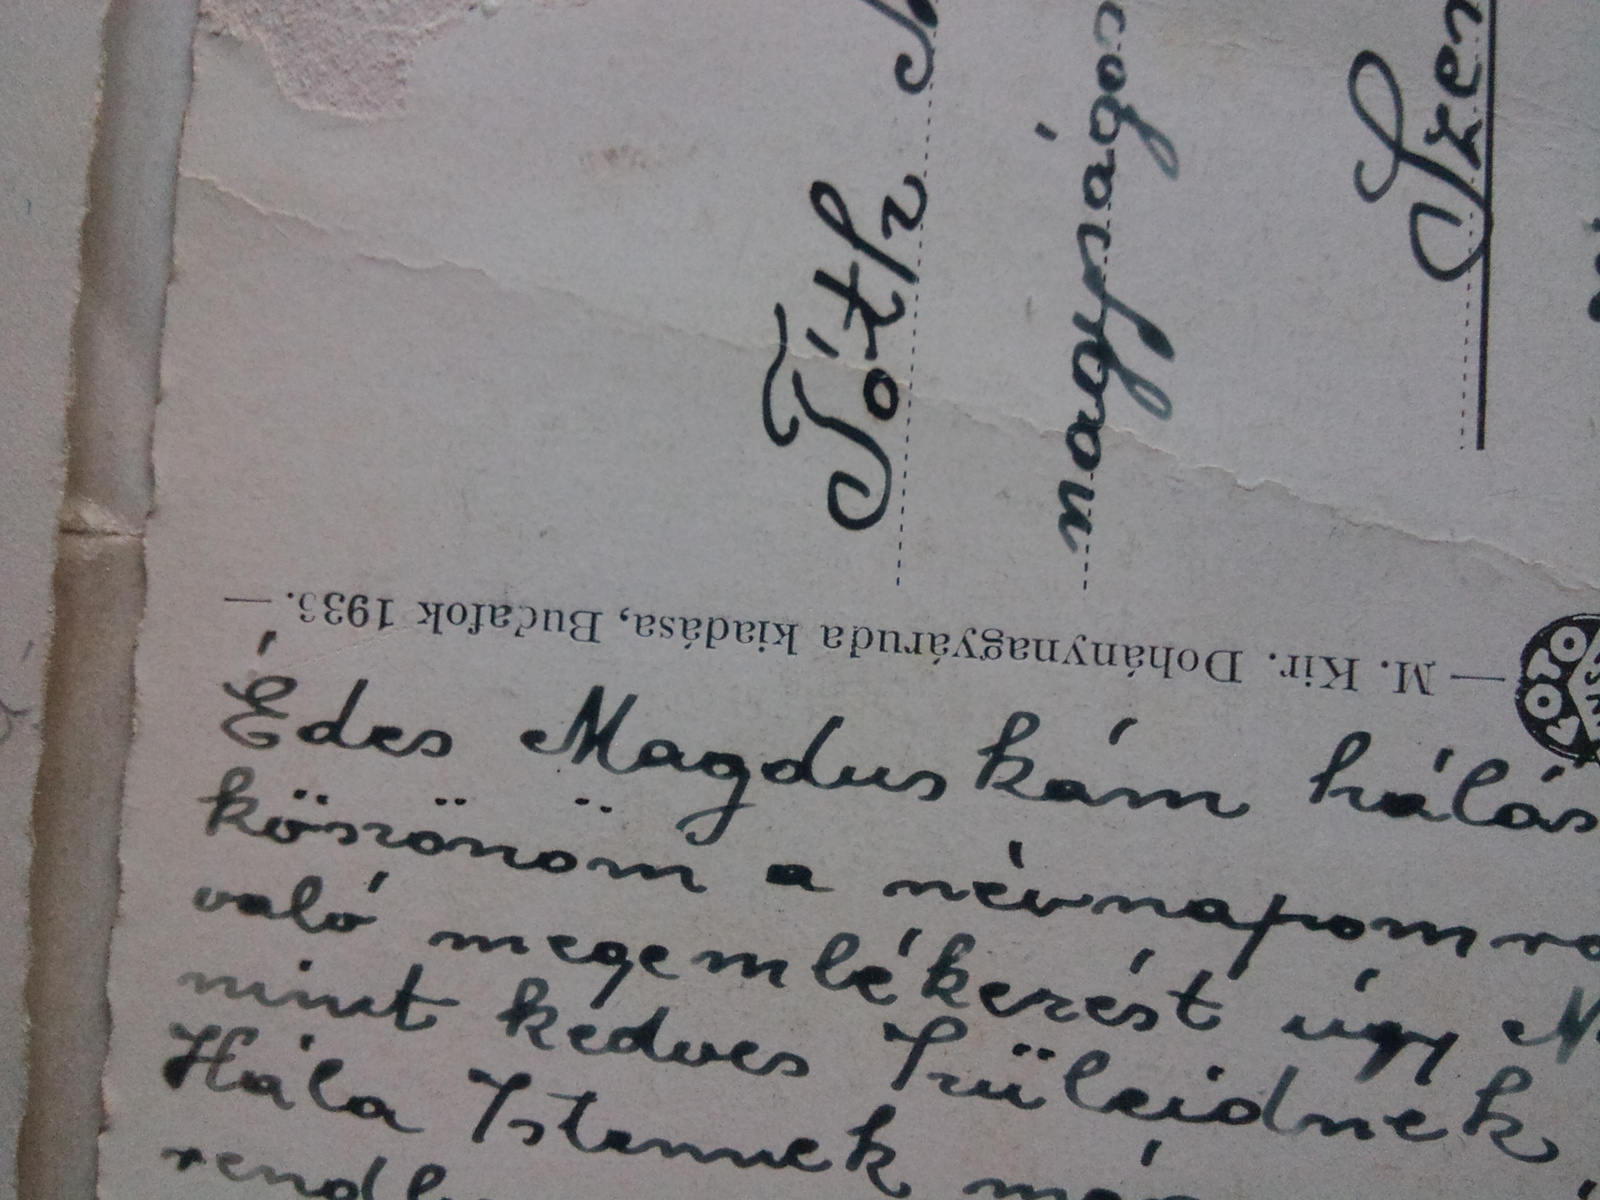 Tóth
Szen
— M. Kir. Dohánynagyáruda kiadása, Budafok 1933. —
FOTO
Édes Magduskám hálás
köszönöm a névnapomra
való megemlékezést úgy N
mint kedves Szüleidnek
Hála Istennek már
rendb